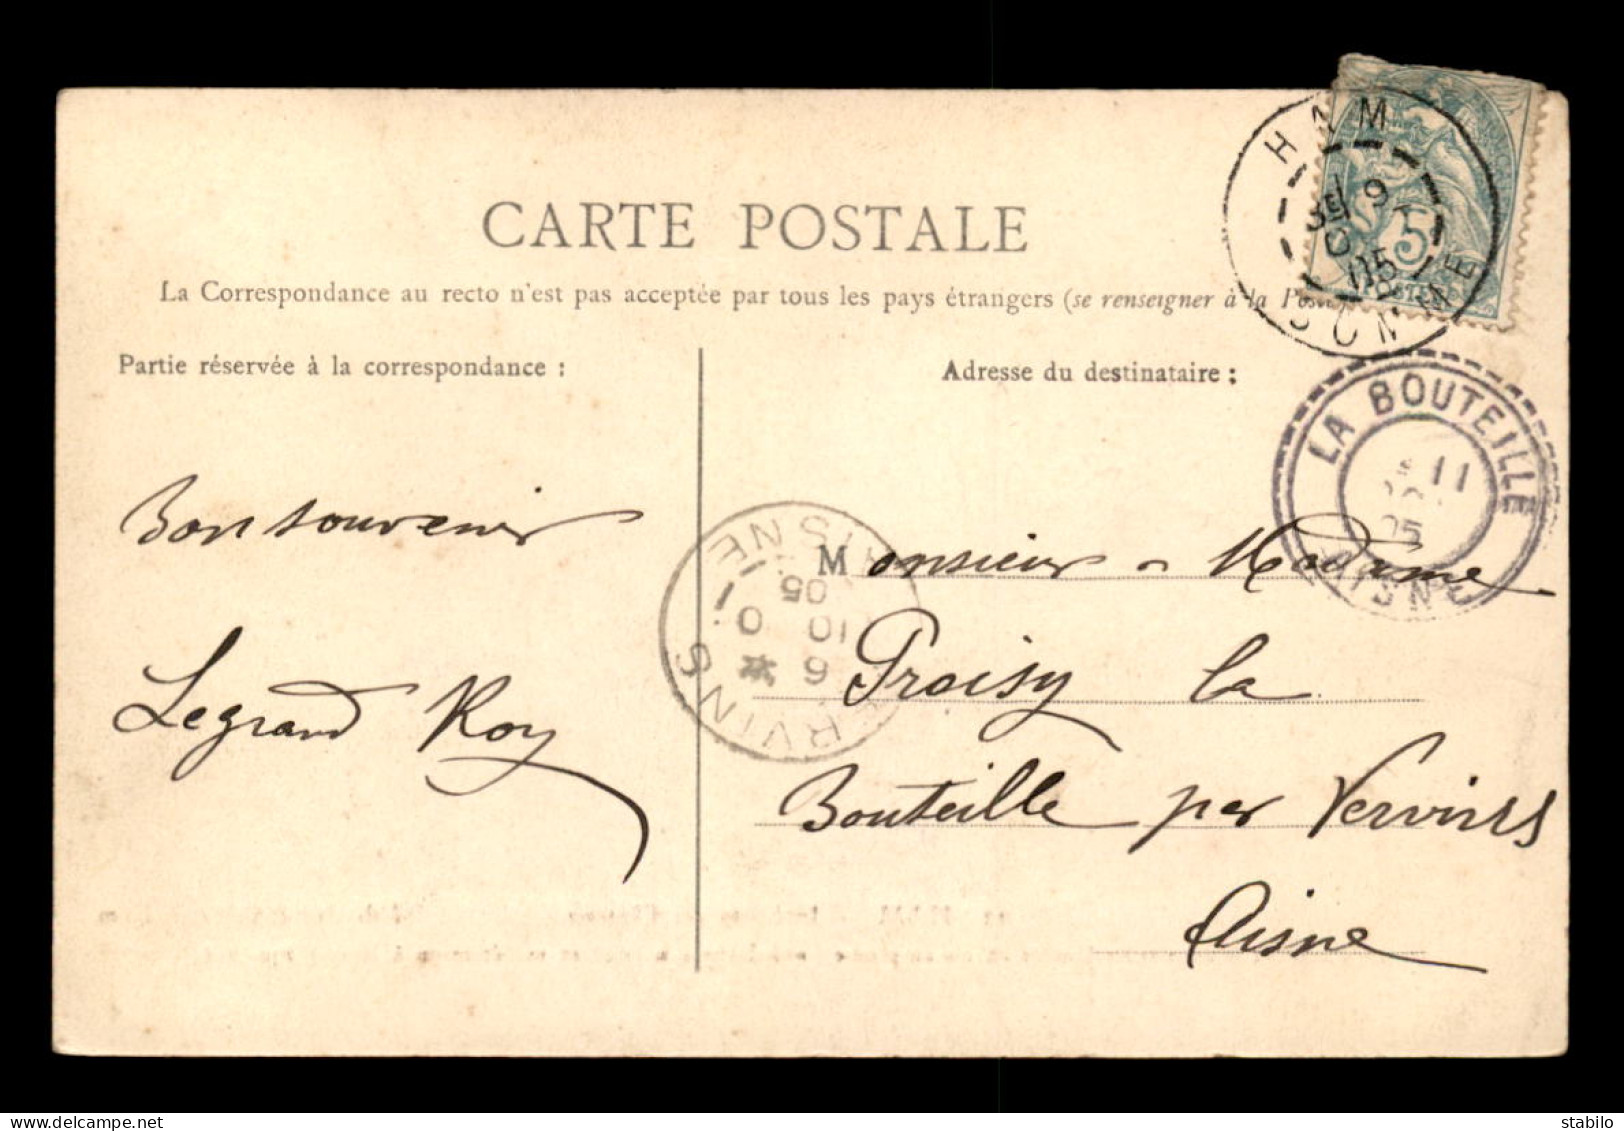 CARTE POSTALE
La Correspondance au recto n'est pas acceptée par tous les pays étrangers (se renseigner à la Poste
Partie réservée à la correspondance :
Adresse du destinataire :
HAM
9
05
SOMME
5
LA BOUTEILLE
11
05
AISNE
VERVINS
6
10
05
AISNE
Bon souvenir
Legrand Roy
Monsieur - Madame
Proisy la
Bouteille par Vervins
Aisne
delcampe.net
stabilo